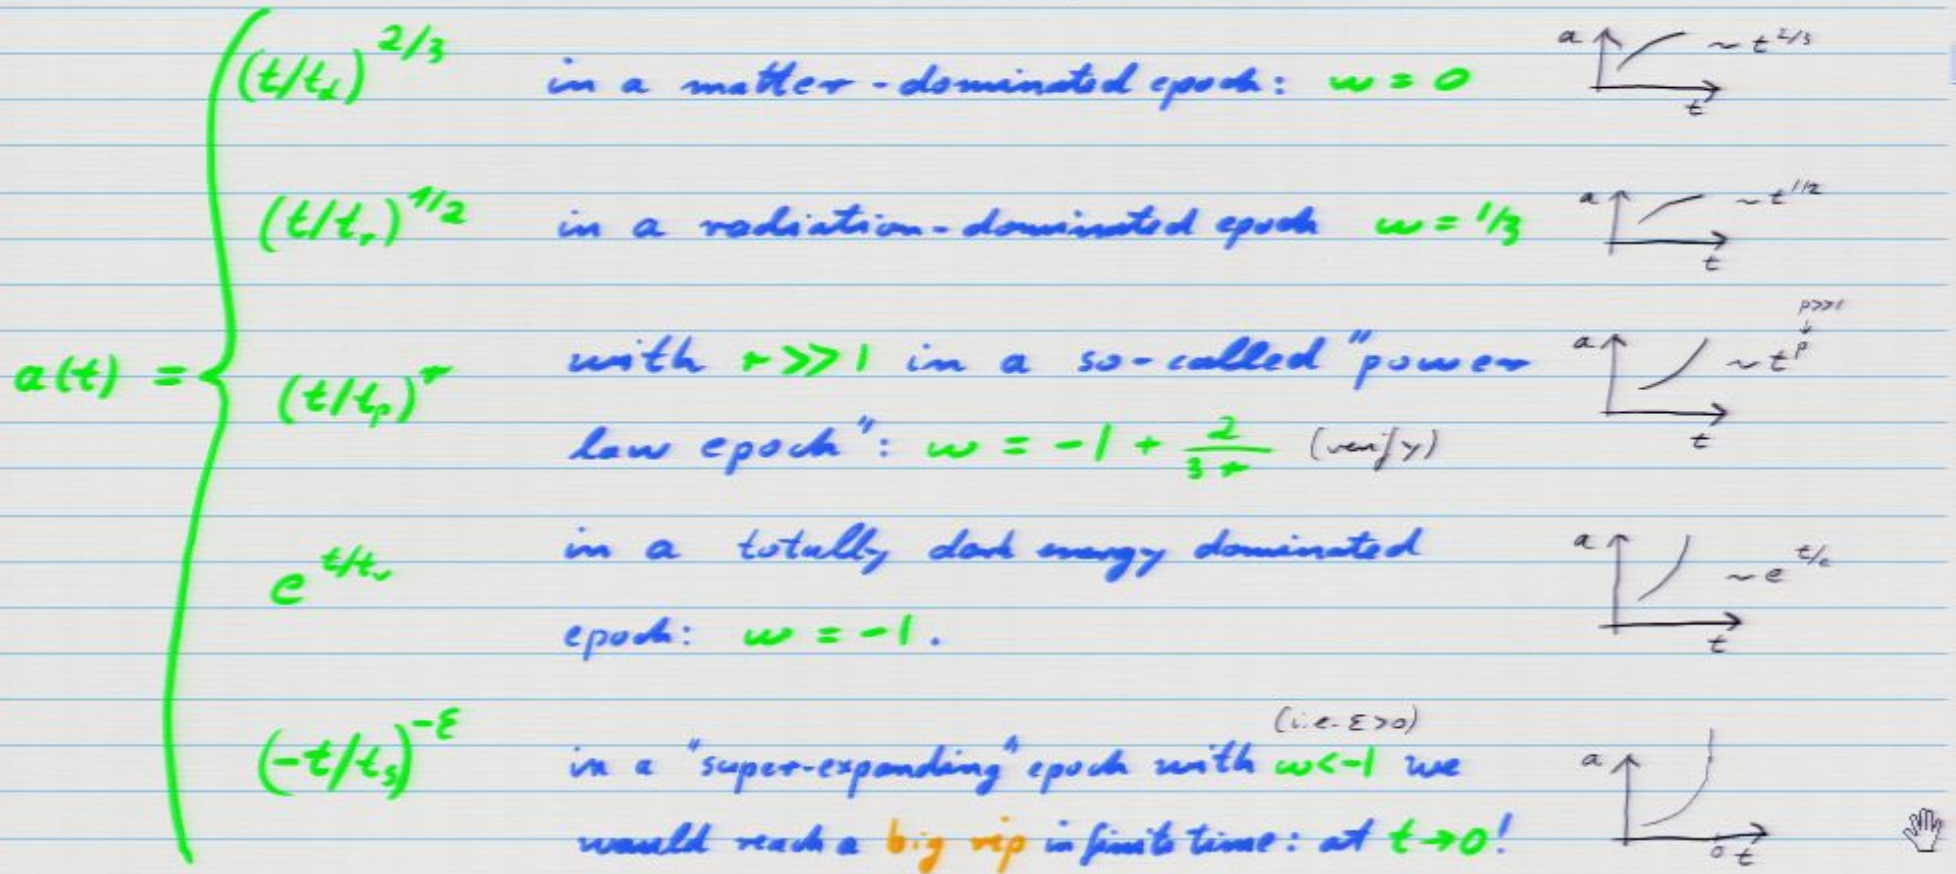 (t/t_d)^{2/3} in a matter-dominated epoch: w = 0 a ~ t^{2/3} t
(t/t_r)^{1/2} in a radiation-dominated epoch w = 1/3 a ~ t^{1/2} t
a(t) = (t/t_p)^r with r >> 1 in a so-called "power a ~ t^p p>>1 t
law epoch": w = -1 + 2/3r (verify)
e^{t/t_v} in a totally dark energy dominated a ~ e t
epoch: w = -1.
(i.e. ε>0)
(-t/t_s)^{-ε} in a "super-expanding" epoch with w<-1 we a
would reach a big rip in finite time: at t→0! 0 t